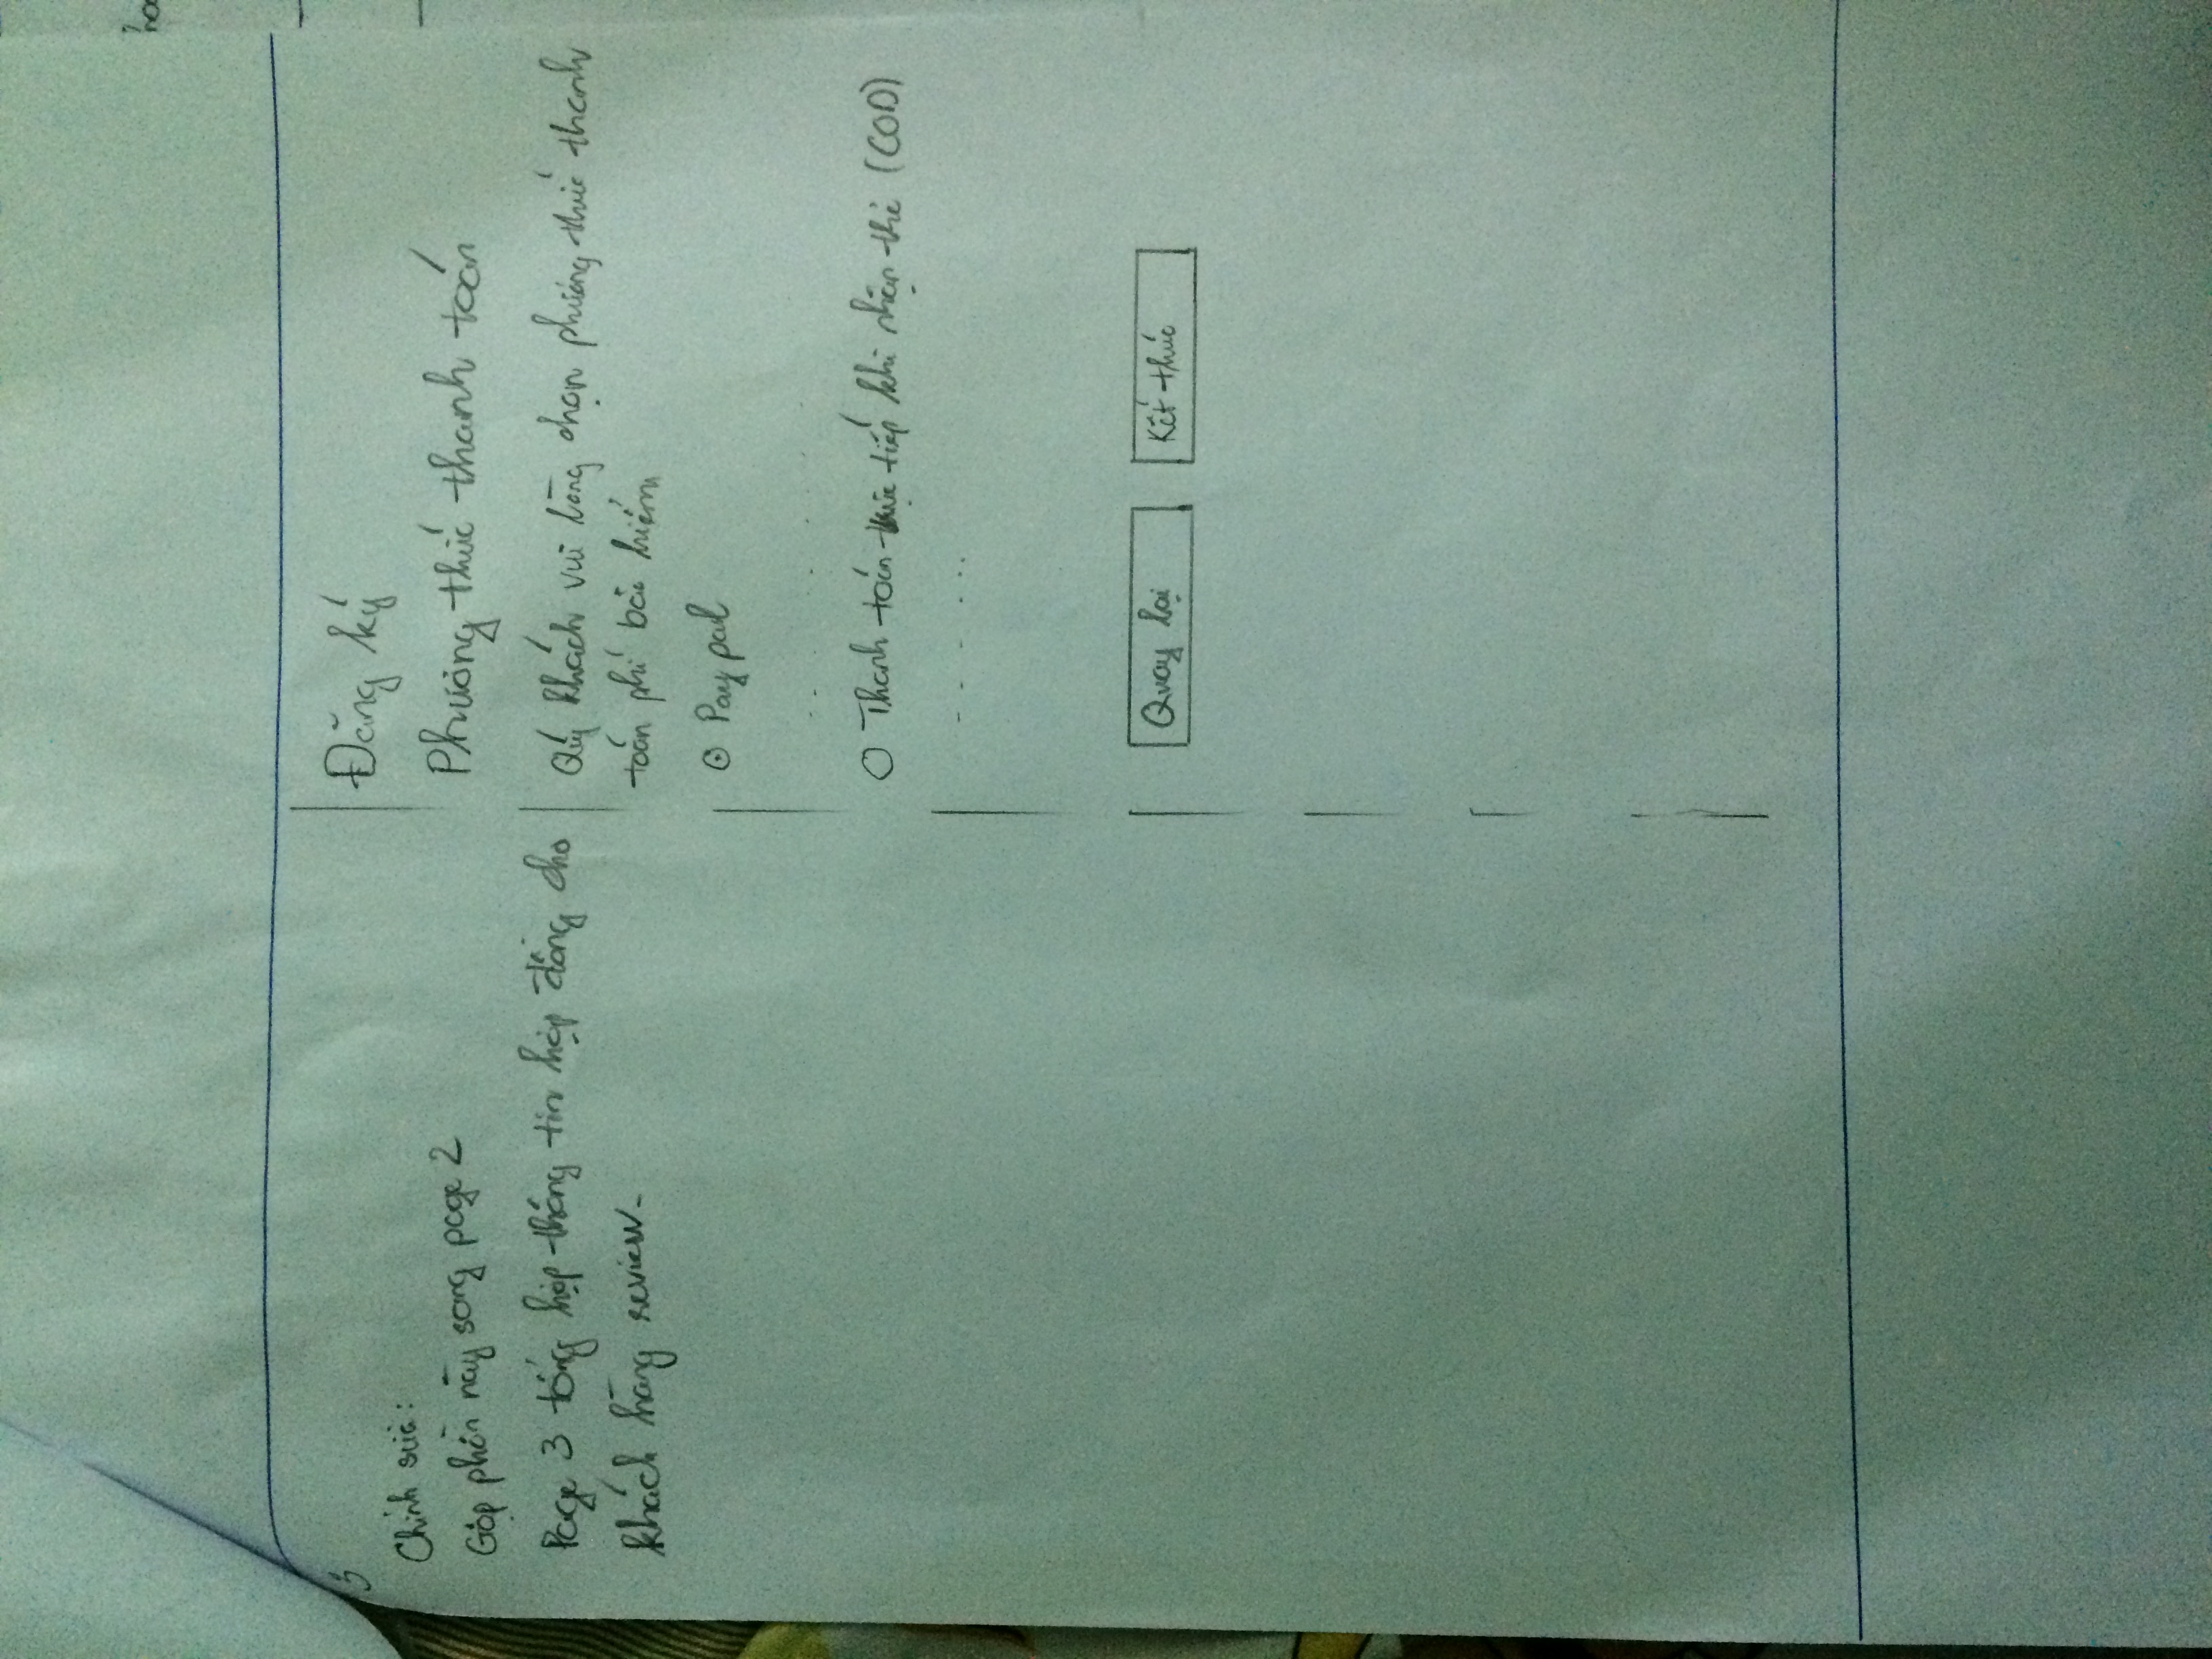 3
Chỉnh sửa:
Gộp phần này sang page 2
Page 3 tổng hợp thông tin hợp đồng cho
khách hàng review.
Đăng ký
Phương thức thanh toán
Quý khách vui lòng chọn phương thức thanh
toán phí bảo hiểm
Paypal
Thanh toán trực tiếp khi nhận thẻ (COD)
Quay lại
Kết thúc